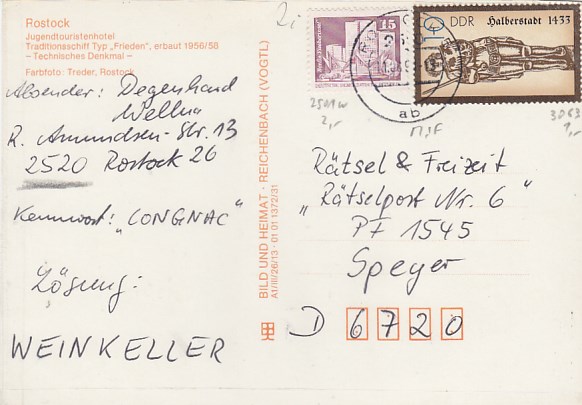 Rostock
Jugendtouristenhotel
Traditionsschiff Typ „Frieden", erbaut 1956/58
– Technisches Denkmal –
Farbfoto: Treder, Rostock
Absender: Degenhard
R. Amundsen-Str. 13
2520 Rostock 26
Kennwort: „CONGNAC"
Lösung:
WEINKELLER
BILD UND HEIMAT · REICHENBACH (VOGTL)
A1/III/26/13 · 01 01 1372/31
15
10 DDR Halberstadt 1433
ab
2501w
2,-
3063
1,-
Rätsel & Freizeit
„Rätselpost Nr. 6"
PF 1545
Speyer
D 6720